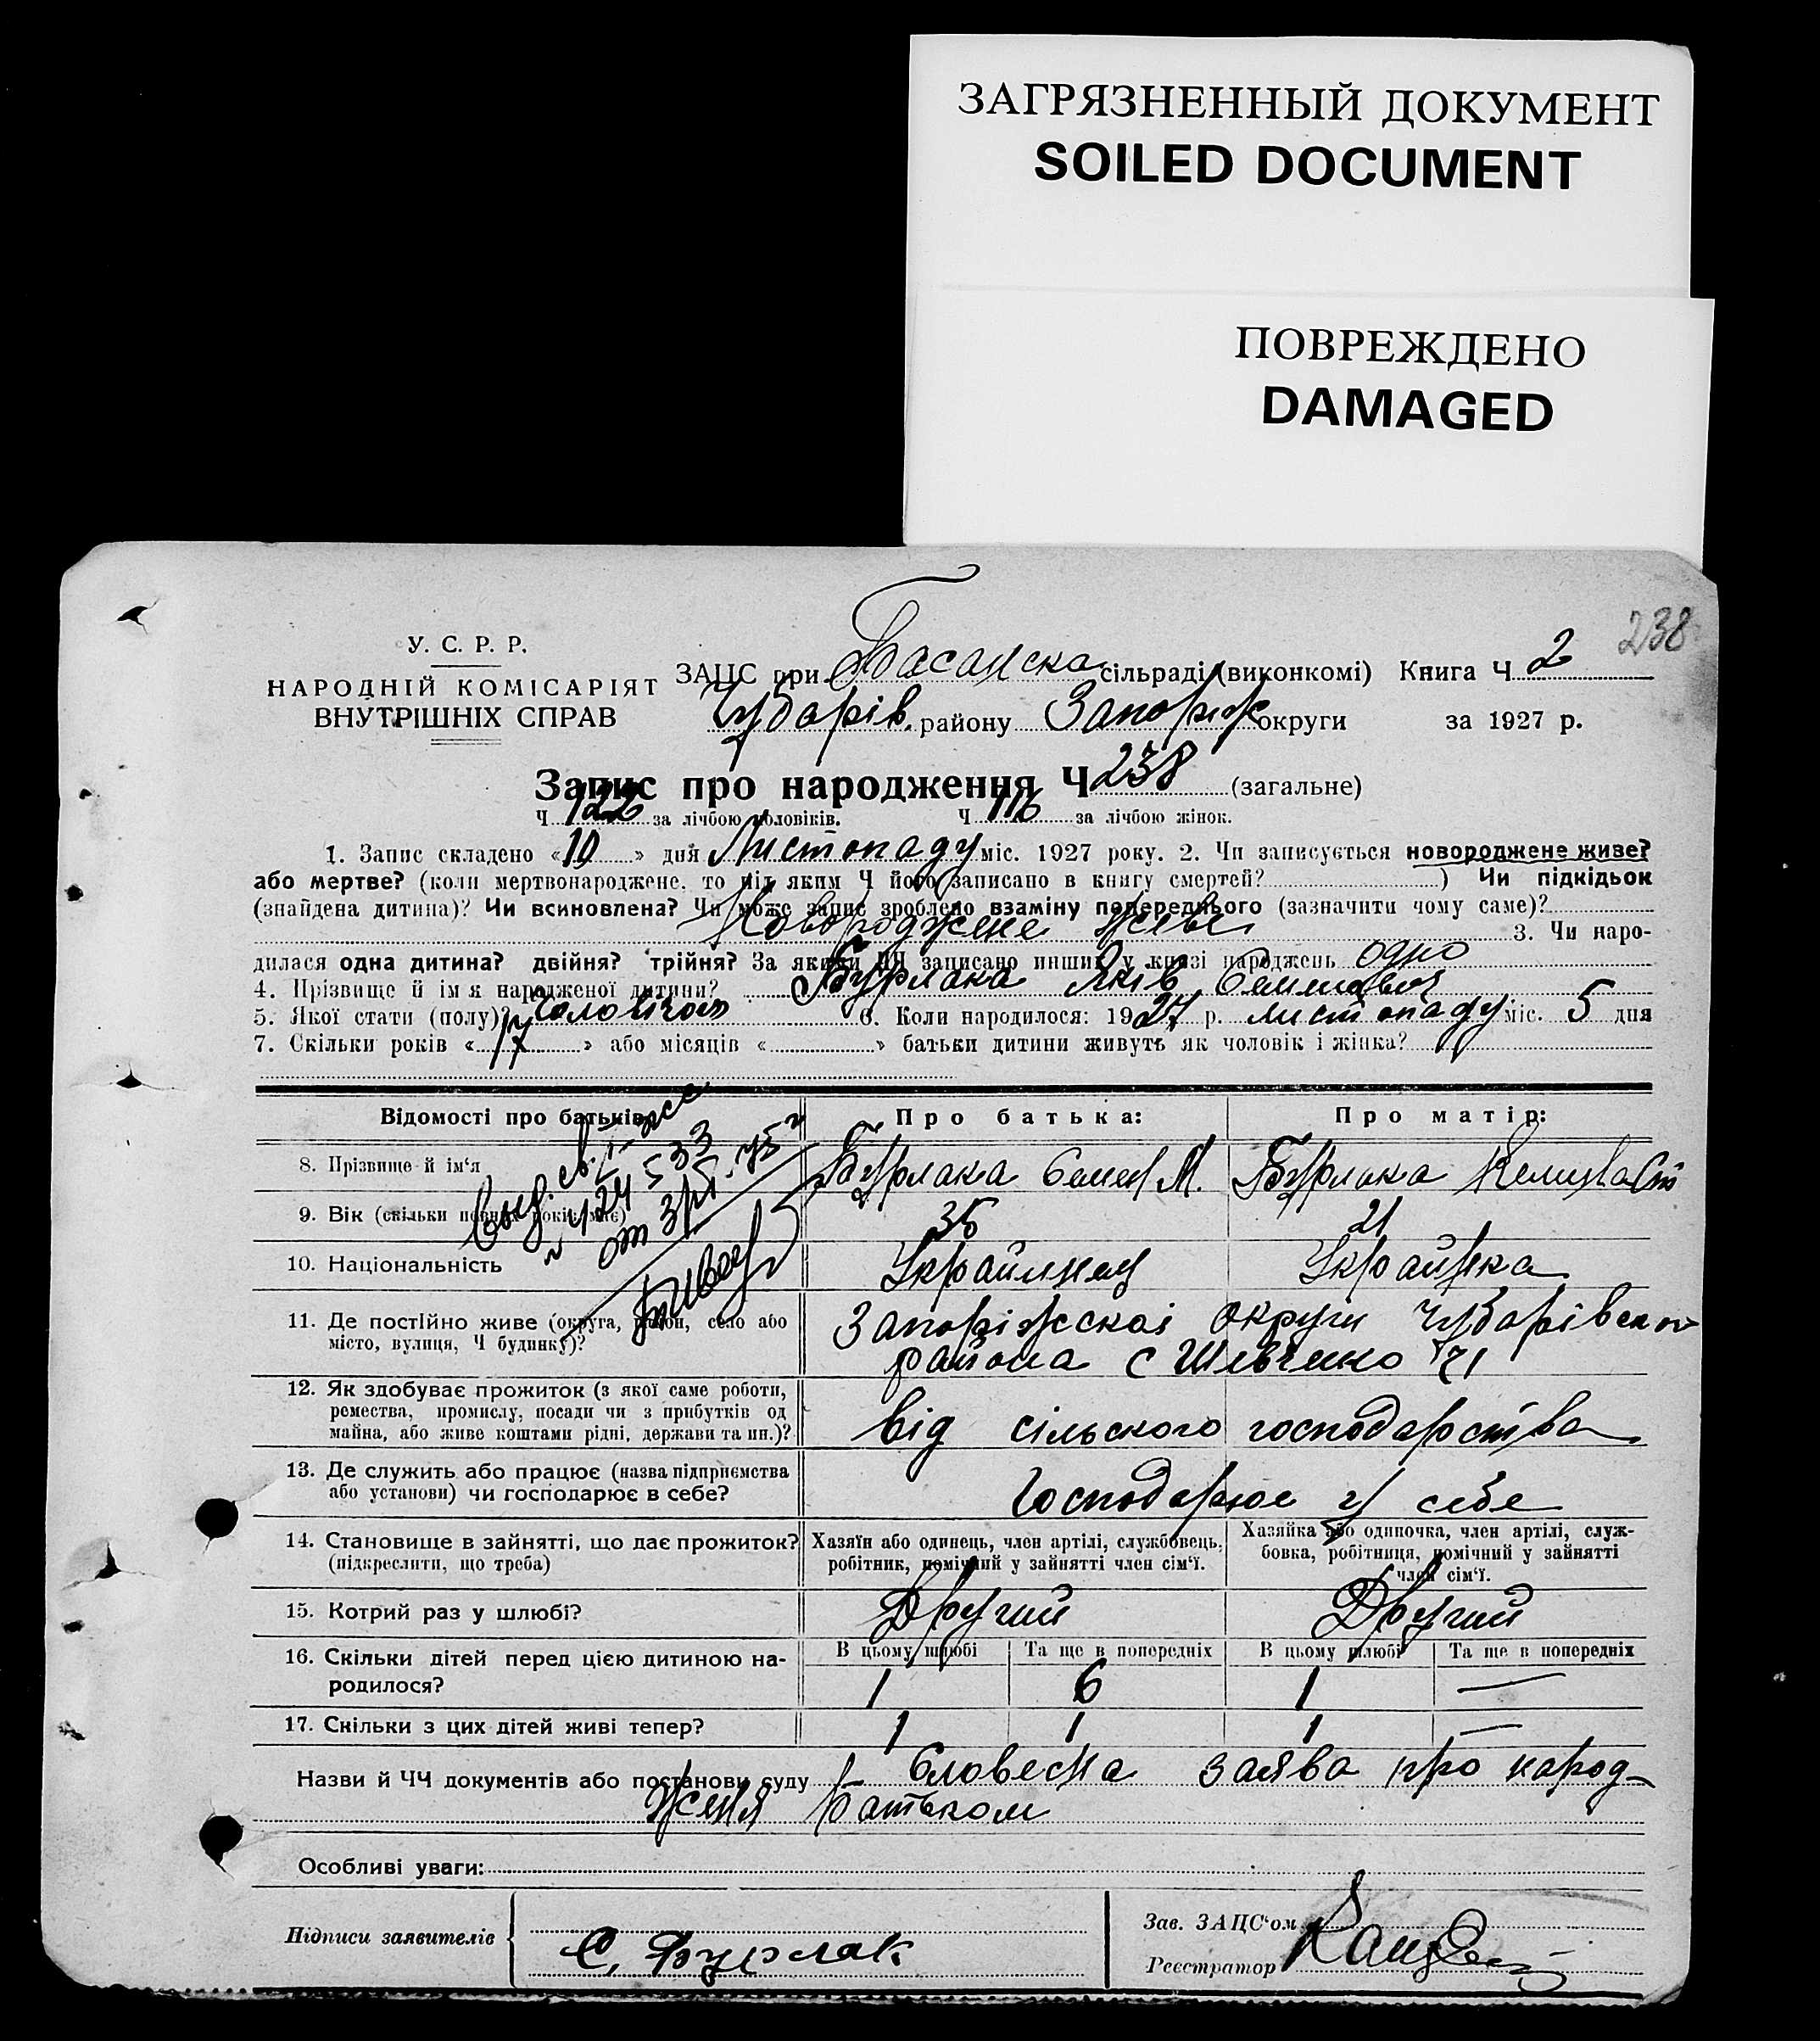 ЗАГРЯЗНЕННЫЙ ДОКУМЕНТ
SOILED DOCUMENT
ПОВРЕЖДЕНО
DAMAGED
238
У. С. Р. Р.
НАРОДНІЙ КОМІСАРІЯТ
ВНУТРІШНІХ СПРАВ
ЗАЦС при Басанска сільраді (виконкомі) Книга Ч 2
Чубарів. району Запоріж округи за 1927 р.
Запис про народження Ч 238 (загальне)
Ч 122 за лічбою чоловіків. Ч 116 за лічбою жінок.
1. Запис складено «10» дня Листопаду міс. 1927 року. 2. Чи записується новороджене живе?
або мертве? (коли мертвонароджене, то під яким Ч його записано в книгу смертей? ) Чи підкідьок
(знайдена дитина)? Чи всиновлена? Чи може запис зроблено взаміну попереднього (зазначити чому саме)?
Новороджене живе 3. Чи наро-
дилася одна дитина? двійня? трійня? За якими ЧЧ записано инших у книзі народжень одно
4. Прізвище й ім'я народженої дитини? Бурлака Яків Семенович
5. Якої стати (полу)? 6. Коли народилося: 1927 р. листопаду міс. 5 дня
7. Скільки років « » або місяців « » батьки дитини живуть як чоловік і жінка?
Відомості про батьків Про батька: Про матір:
8. Прізвище й ім'я Бурлака Семен М. Бурлака
9. Вік (скільки повних років має) 35 21
10. Національність Українец Українка
11. Де постійно живе (округа, район, село або Запоріжскоі округи Чубарівскоі
місто, вулиця, Ч будинку)? района с Шевченко 71
12. Як здобуває прожиток (з якої саме роботи,
ремества, промислу, посади чи з прибутків од
майна, або живе коштами рідні, держави та ин.)? від сільского господарства
13. Де служить або працює (назва підприємства
або установи) чи господарює в себе? Господарює у себе
14. Становище в зайнятті, що дає прожиток? Хазяїн або одинець, член артілі, службовець, Хазяйка або одиночка, член артілі, служ-
(підкреслити, що треба) робітник, помічний у зайнятті член сім'ї. бовка, робітниця, помічний у зайнятті
член сім'ї.
15. Котрий раз у шлюбі? Другий Другий
16. Скільки дітей перед цією дитиною на- В цьому шлюбі Та ще в попередніх В цьому шлюбі Та ще в попередніх
родилося? 1 6 1 —
17. Скільки з цих дітей живі тепер? 1 1 1 —
Назви й ЧЧ документів або постанови суду Словесна заява про народ-
женя батьком
Особливі уваги:
Підписи заявителів С. Бурлак
Зав. ЗАЦС'ом
Реєстратор